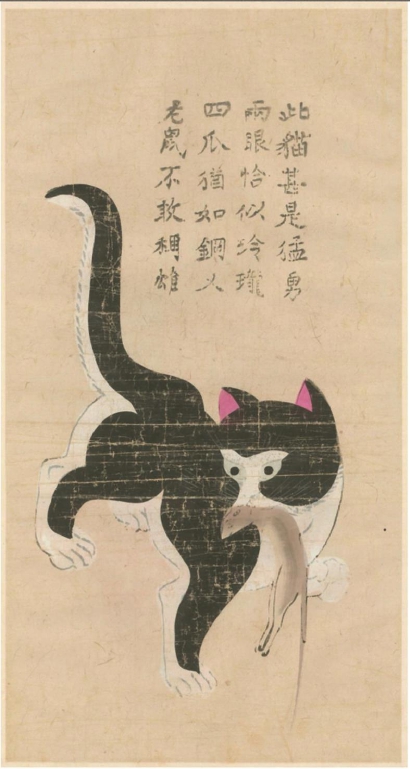 此猫甚是猛勇
兩眼恰似玲瓏
四爪猶如鋼义
老鼠不敢稱雄